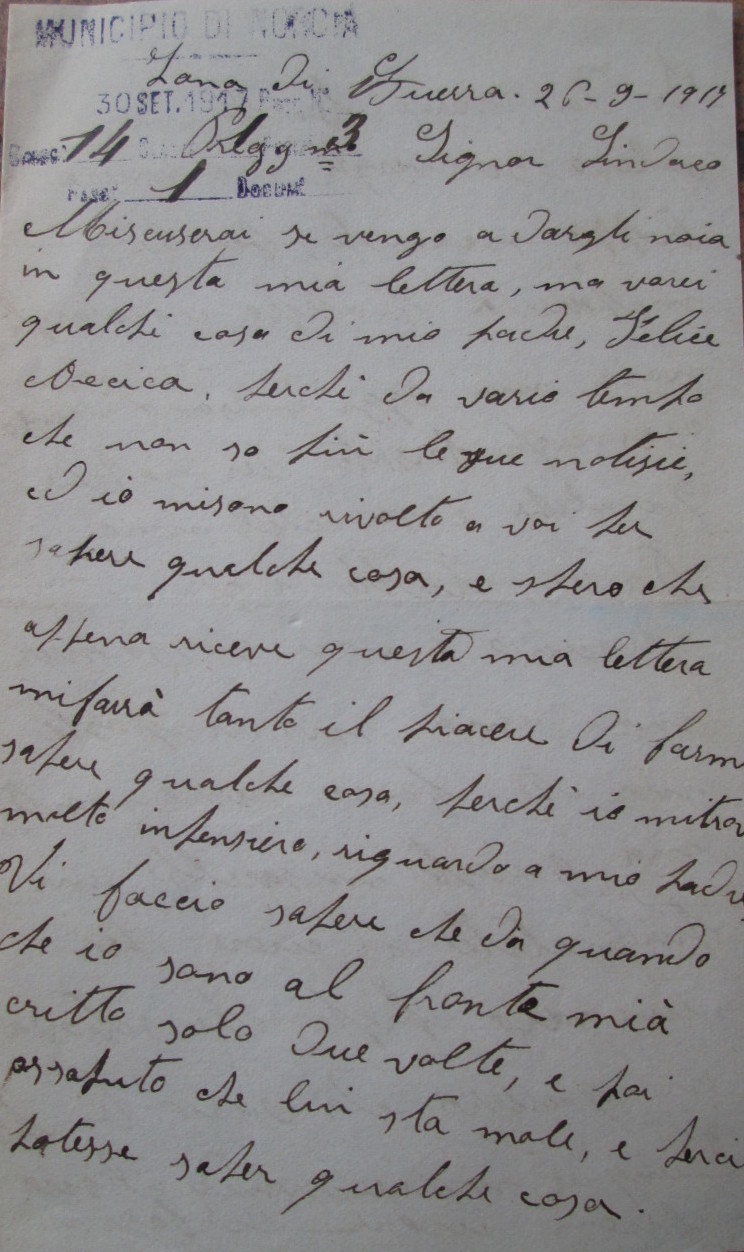 MUNICIPIO DI NORCIA
Zona di Guerra. 26-9-1917
30 SET. 1917 Prot. N.
14 3 Signor Sindaco
1 DOCUME
Miscuserai se vengo a dargli noia
in questa mia lettera, ma vorei
qualchi cosa di mio padre, Felice
perchi da vario tempo
che non so più le sue notisie,
ed io misono rivolto a voi per
sapere qualche cosa, e spero che
appena riceve questa mia lettera
mifarrà tanto il piacere di farm
sapere qualche cosa, perchè io mitrov
molto inpensiero, riguardo a mio padre,
Vi faccio sapere che da quando
che io sono al fronte mià
critto solo due volte, e poi
ossaputo che lui sta male, e perci
potesse saper qualche cosa.